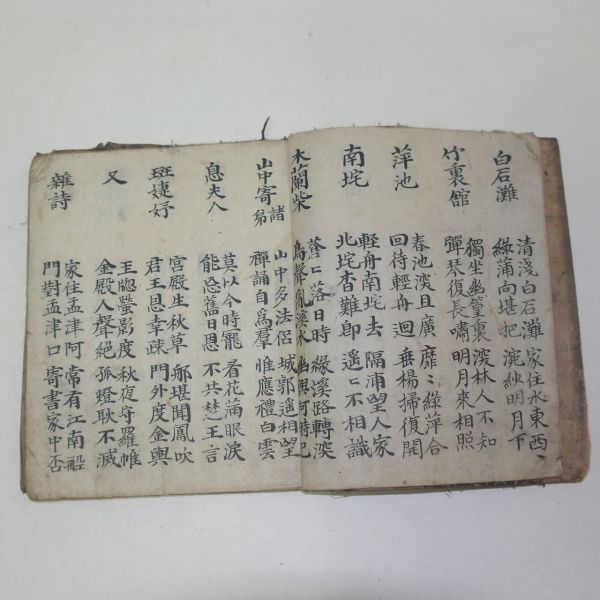 白石灘
清淺白石灘
綠蒲向堪把
家住水東西
浣紗明月下
竹裏館
獨坐幽篁裏
彈琴復長嘯
深林人不知
明月來相照
萍池
春池深且廣
回待輕舟迴
靡〻綠萍合
垂楊掃復開
南垞
輕舟南垞去
北垞杳難即
隔浦望人家
遙〻不相識
木蘭柴
蒼〻落日時
鳥聲亂溪水
緣溪路轉深
幽興何時已
山中寄諸弟
山中多法侶
禪誦自爲羣
城郭遙相望
惟應禮白雲
息夫人
莫以今時寵
能忘舊日恩
看花滿眼淚
不共楚王言
班婕妤
宮殿生秋草
君王恩幸疎
那堪聞鳳吹
門外度金輿
又
玉牕螢影度
金殿人聲絕
秋夜守羅帷
孤燈耿不滅
雜詩
家住孟津河
門對孟津口
常有江南船
寄書家中否